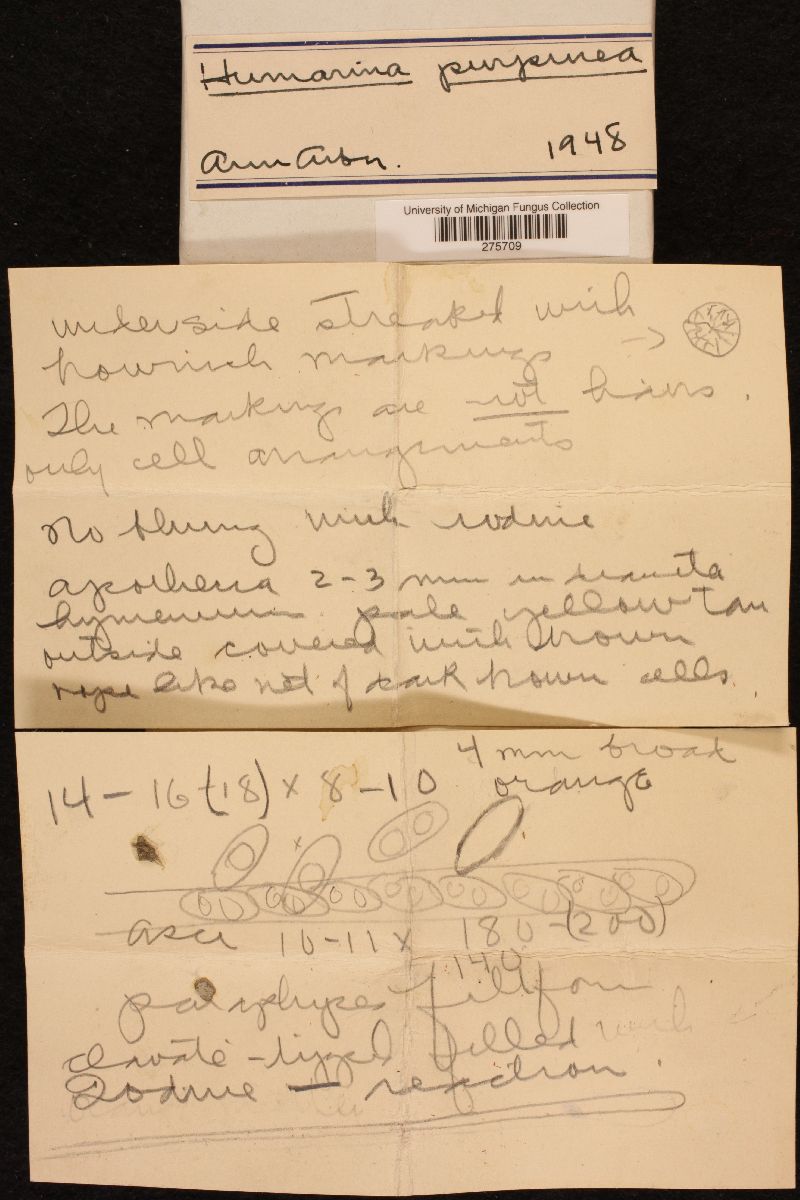 Humarina purpurea
Ann Arbor. 1948
University of Michigan Fungus Collection
275709
underside streaked with
brownish markings →
The markings are not hairs.
only cell arrangements
No bluing with iodine
apothecia 2-3 mm in diameter
hymenium pale yellow tan
outside covered with brown
rope like net of dark brown cells.
4 mm broad
14 - 16 (18) x 8 - 10 orange
x
asci 10-11 x 180 - (200)
140
paraphyses filiform
clavate-tipped filled with
Iodine — reaction.